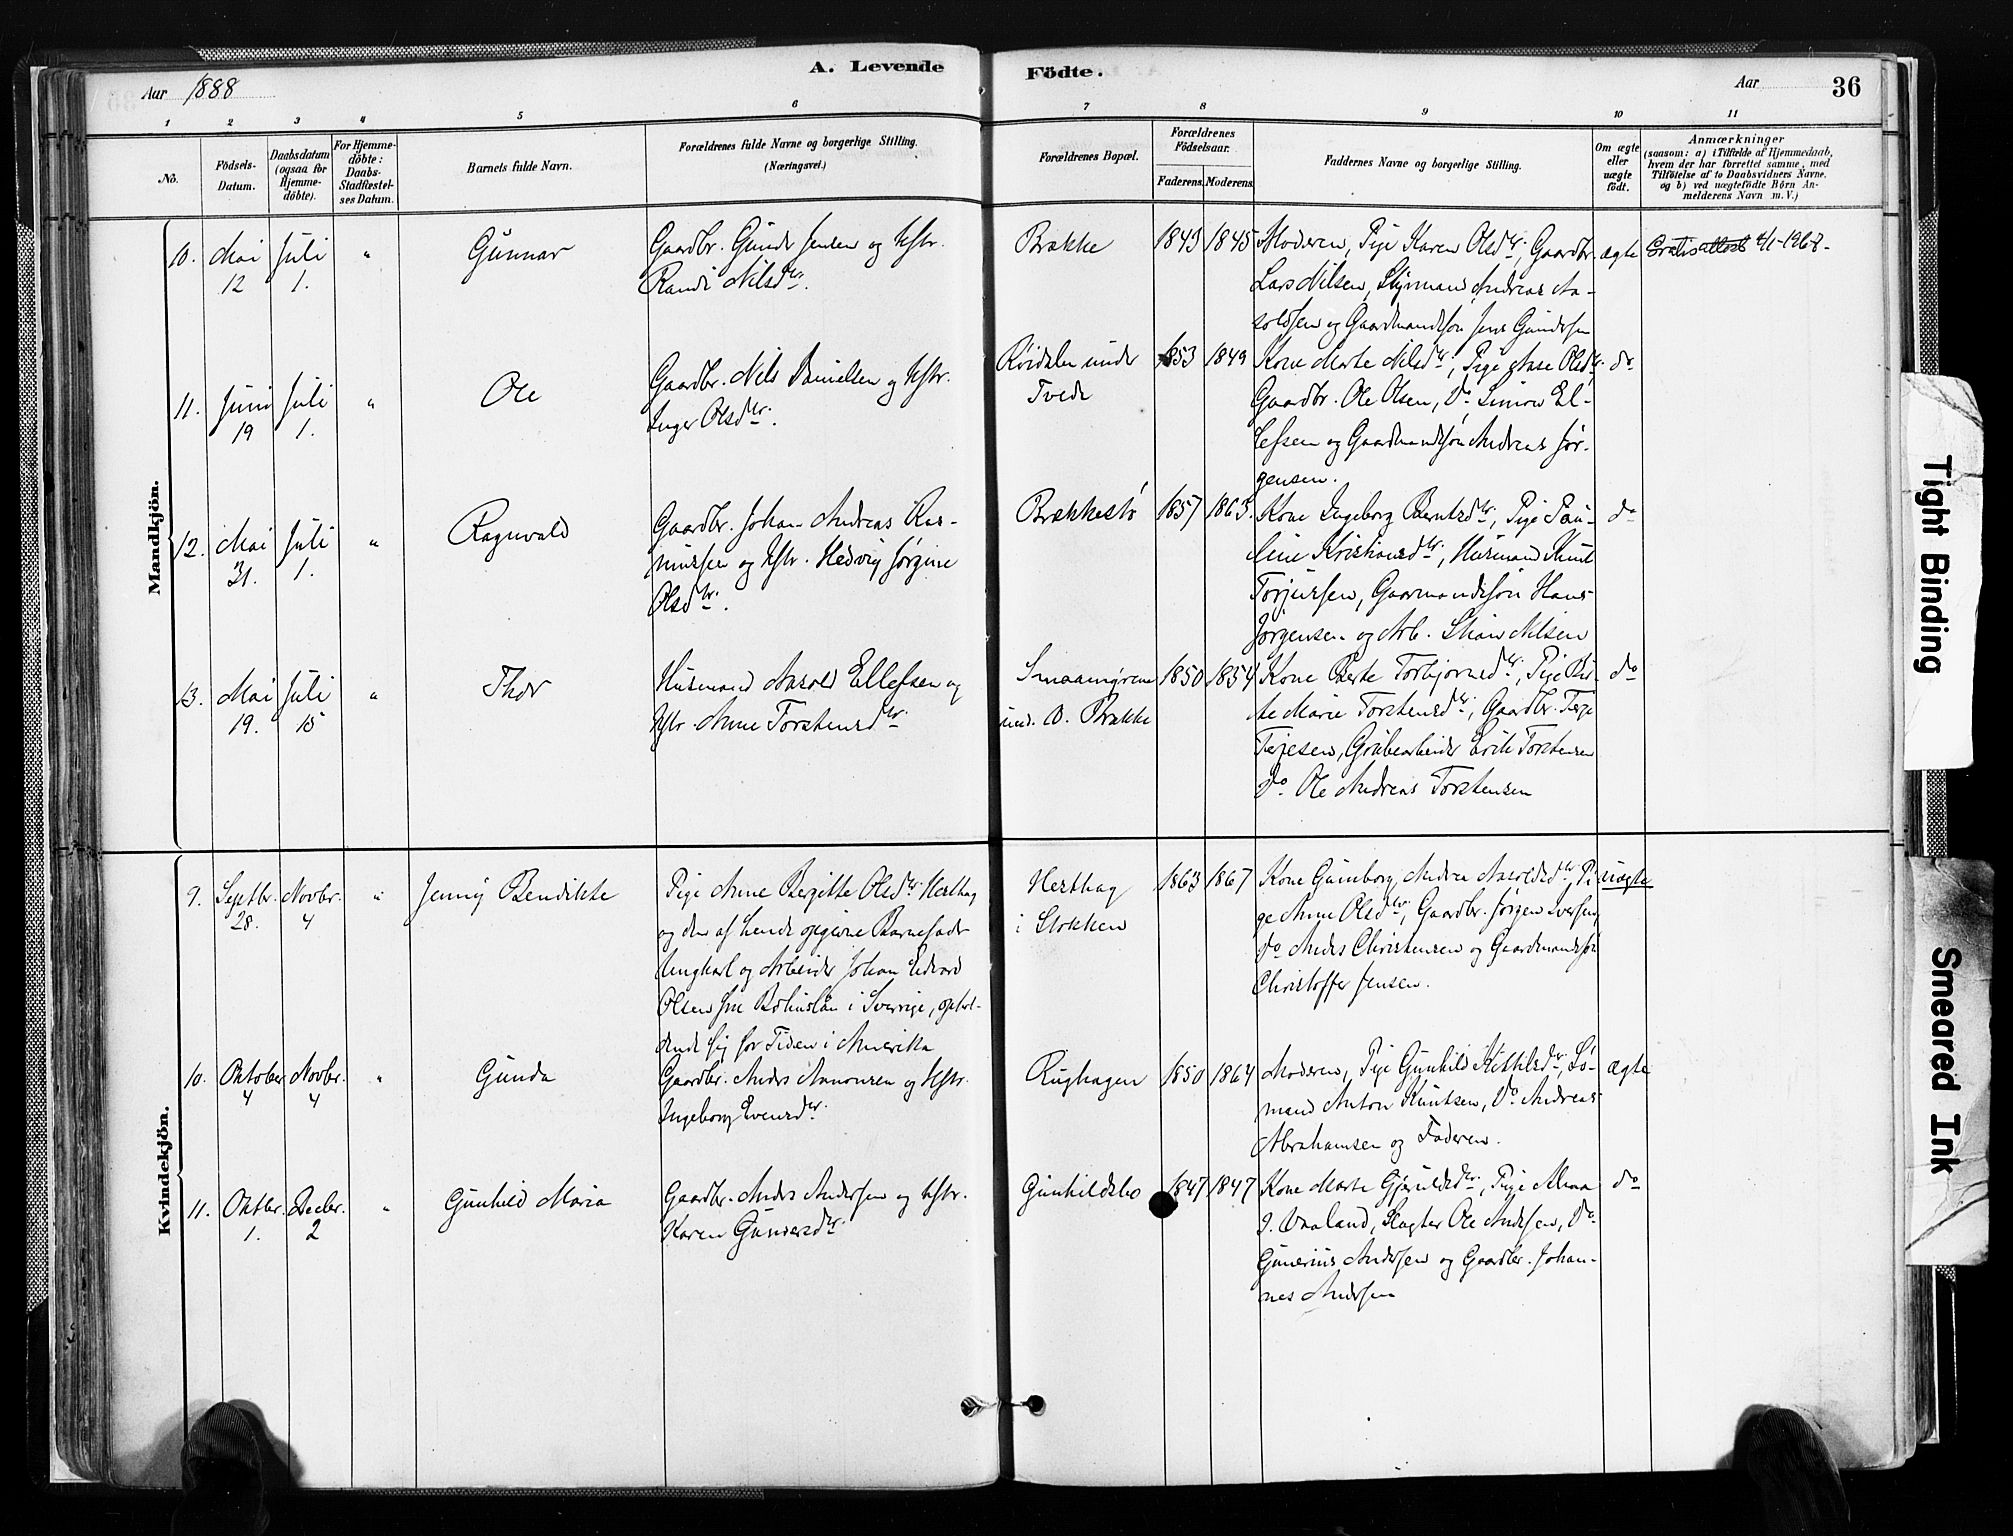 A. Levende Födte.
Aar 1888
Aar 36
1 2 3 4 5 6 7 8 9 10 11
No.
Födsels-
Datum.
Daabsdatum
(ogsaa for
Hjemme-
döbte).
For Hjemme-
döbte:
Daabs-
Stadfæstel-
ses Datum.
Barnets fulde Navn.
Forældrenes fulde Navne og borgerlige Stilling.
(Næringsvei.)
Forældrenes Bopæl.
Forældrenes
Födselsaar.
Faderens. Moderens.
Faddernes Navne og borgerlige Stilling.
Om ægte
eller
uægte
födt.
Anmærkninger
(saasom: a) i Tilfælde af Hjemmedaab,
hvem der har forrettet samme, med
Tilföielse af to Daabsvidners Navne,
og b) ved uægtefödte Börn An-
melderens Navn m. V.)
Mandkjön.
10. Mai
12
Juli
1.
"
Gunnar
Gaardbr. Gunder Jensen og Hstr.
Randi Nilsdtr.
Brække
1843 1845
Moderen, Pige Karen Olsdtr., Gaardbr.
Lars Nilsen, Styrmand Andreas Aa-
soldsen og Gaardmandssøn Jens Gundersen
ægte
Gratisattest 4/1-1968-
11. Juni
19
Juli
1.
"
Ole
Gaardbr. Nils Danielsen og Hstr.
Inger Olsdtr.
under
Tvede
1853 1849
Kone Marte Nilsdtr., Pige Aase Olsdtr.
Gaardbr. Ole Olsen, Do Simon El-
lefsen og Gaardmandssøn Andreas Jør-
gensen.
do
12. Mai
31.
Juli
1.
"
Ragnvald
Gaardbr. Johan Andreas Ras-
mussen og Hstr. Hedvig Jørgine
Olsdtr.
Brækkestø
1857 1863.
Kone Ingeborg Berntsdtr., Pige Pau-
line Kristiansdtr., Husmand Knut
Torjussen, Gaarmandssøn Hans
Jørgensen og Arb. Nilsen
do
13. Mai
19.
Juli
15
"
Thor
Husmand Aasold Ellefsen og
Hstr. Anne Torstensdtr.
und. Ø. Brække
1850 1854
Kone Berte Torbjørnsdtr., Pige Ber-
te Marie Torstensdtr., Gaardbr. Terje
Terjesen, Grubearbeider Erik Torstensen
Do. Ole Andreas Torstensen
do
Kvindekjön.
9. Septbr.
28.
Novbr.
4
"
Jenny Bendikte
Pige Anne Bergitte Olsdtr. Hesthag
og den af hende opgivne Barnefader
Ungkarl og Arbeider Johan Edvard
Olsen fra Bohuslän i Sverrige, ophol-
dende sig for Tiden i Amerika
Hesthag
i Stokken
1863 1867
Kone Gunborg Andrea Aasoldsdtr., Pi-
ge Anne Olsdtr., Gaardbr. Jørgen Iversen,
Do Anders Christensen og Gaardmandssøn
Christoffer Jensen.
uægte
10. Oktober
4
Novbr.
4
"
Gunda
Gaardbr. Anders Aanonsen og Hstr.
Ingeborg Evensdtr.
Rughagen
1850 1864
Moderen, Pige Gunhild Kittilsdtr., Sø-
mand Anton Knutsen, Do Andreas
Abrahamsen og Faderen.
ægte
11. Oktbr.
1.
Decbr.
2
"
Gunhild Maria
Gaardbr. Anders Andersen og Hstr.
Karen Gundersdtr.
Gunhildsbo
1847 1847
Kone Marte Gjeruldsdtr., Pige Anna
J. Vaaland, Slagter Ole Andersen, Do
Gunerius Andersen og Gaardbr. Johan-
nes Andersen
do
Tight Binding
Smeared Ink